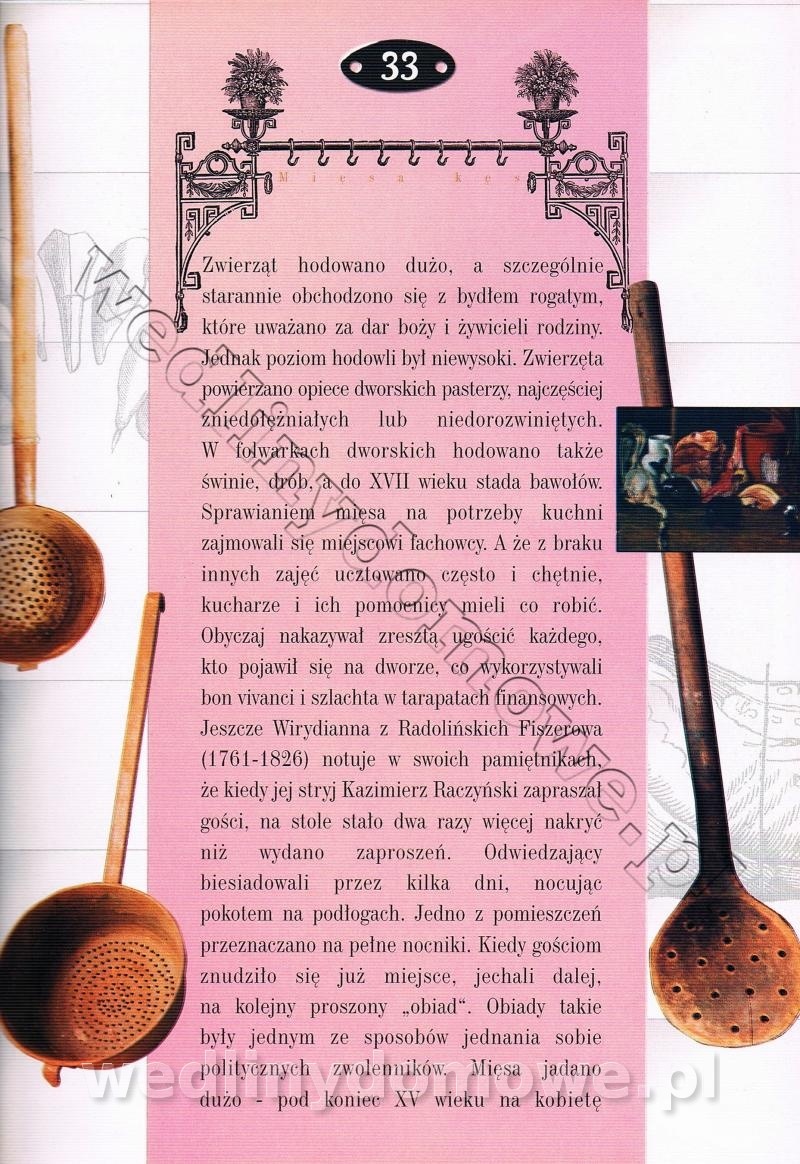 33
Mięsa kęs
Zwierząt hodowano dużo, a szczególnie
starannie obchodzono się z bydłem rogatym,
które uważano za dar boży i żywicieli rodziny.
Jednak poziom hodowli był niewysoki. Zwierzęta
powierzano opiece dworskich pasterzy, najczęściej
zniedołężniałych lub niedorozwiniętych.
W folwarkach dworskich hodowano także
świnie, drób, a do XVII wieku stada bawołów.
Sprawianiem mięsa na potrzeby kuchni
zajmowali się miejscowi fachowcy. A że z braku
innych zajęć ucztowano często i chętnie,
kucharze i ich pomocnicy mieli co robić.
Obyczaj nakazywał zresztą ugościć każdego,
kto pojawił się na dworze, co wykorzystywali
bon vivanci i szlachta w tarapatach finansowych.
Jeszcze Wirydianna z Radolińskich Fiszerowa
(1761-1826) notuje w swoich pamiętnikach,
że kiedy jej stryj Kazimierz Raczyński zapraszał
gości, na stole stało dwa razy więcej nakryć
niż wydano zaproszeń. Odwiedzający
biesiadowali przez kilka dni, nocując
pokotem na podłogach. Jedno z pomieszczeń
przeznaczano na pełne nocniki. Kiedy gościom
znudziło się już miejsce, jechali dalej,
na kolejny proszony „obiad“. Obiady takie
były jednym ze sposobów jednania sobie
politycznych zwolenników. Mięsa jadano
dużo - pod koniec XV wieku na kobietę
wedlinydomowe.pl
wedlinydomowe.pl